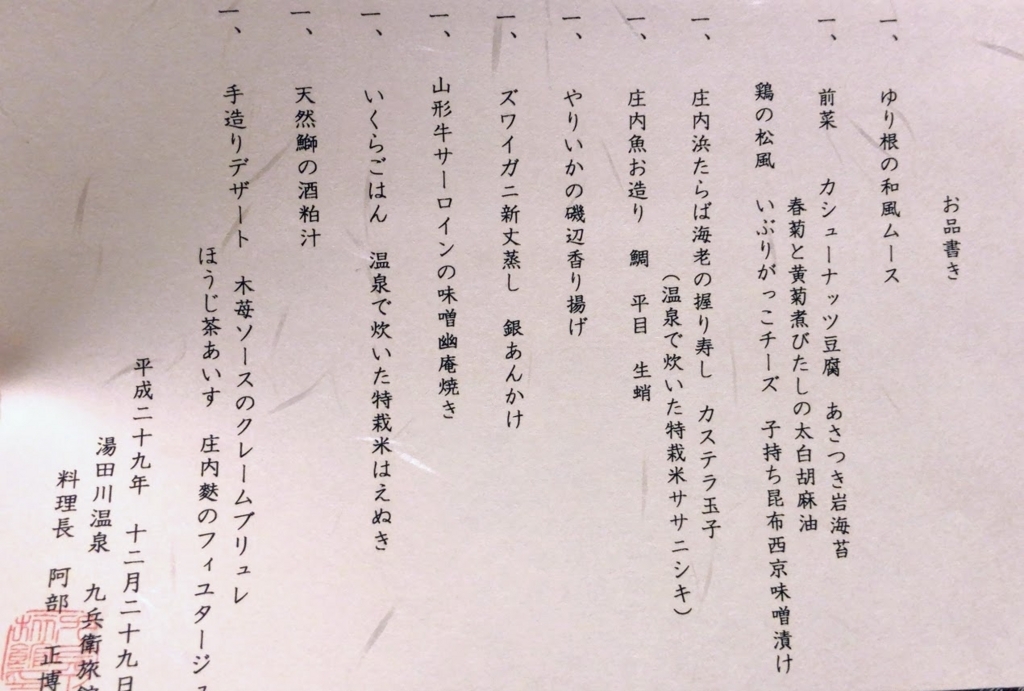 お品書き
一、 ゆり根の和風ムース
一、 前菜 カシューナッツ豆腐 あさつき岩海苔
春菊と黄菊煮びたしの太白胡麻油
鶏の松風 いぶりがっこチーズ 子持ち昆布西京味噌漬け
一、 庄内浜たらば海老の握り寿し カステラ玉子
(温泉で炊いた特栽米ササニシキ)
一、 庄内魚お造り 鯛 平目 生蛸
一、 やりいかの磯辺香り揚げ
一、 ズワイガニ新丈蒸し 銀あんかけ
一、 山形牛サーロインの味噌幽庵焼き
一、 いくらごはん 温泉で炊いた特栽米はえぬき
一、 天然鰤の酒粕汁
一、 手造りデザート 木苺ソースのクレームブリュレ
ほうじ茶あいす 庄内麩のフィユタージュ
平成二十九年 十二月二十九日
湯田川温泉 九兵衛旅館
料理長 阿部 正博